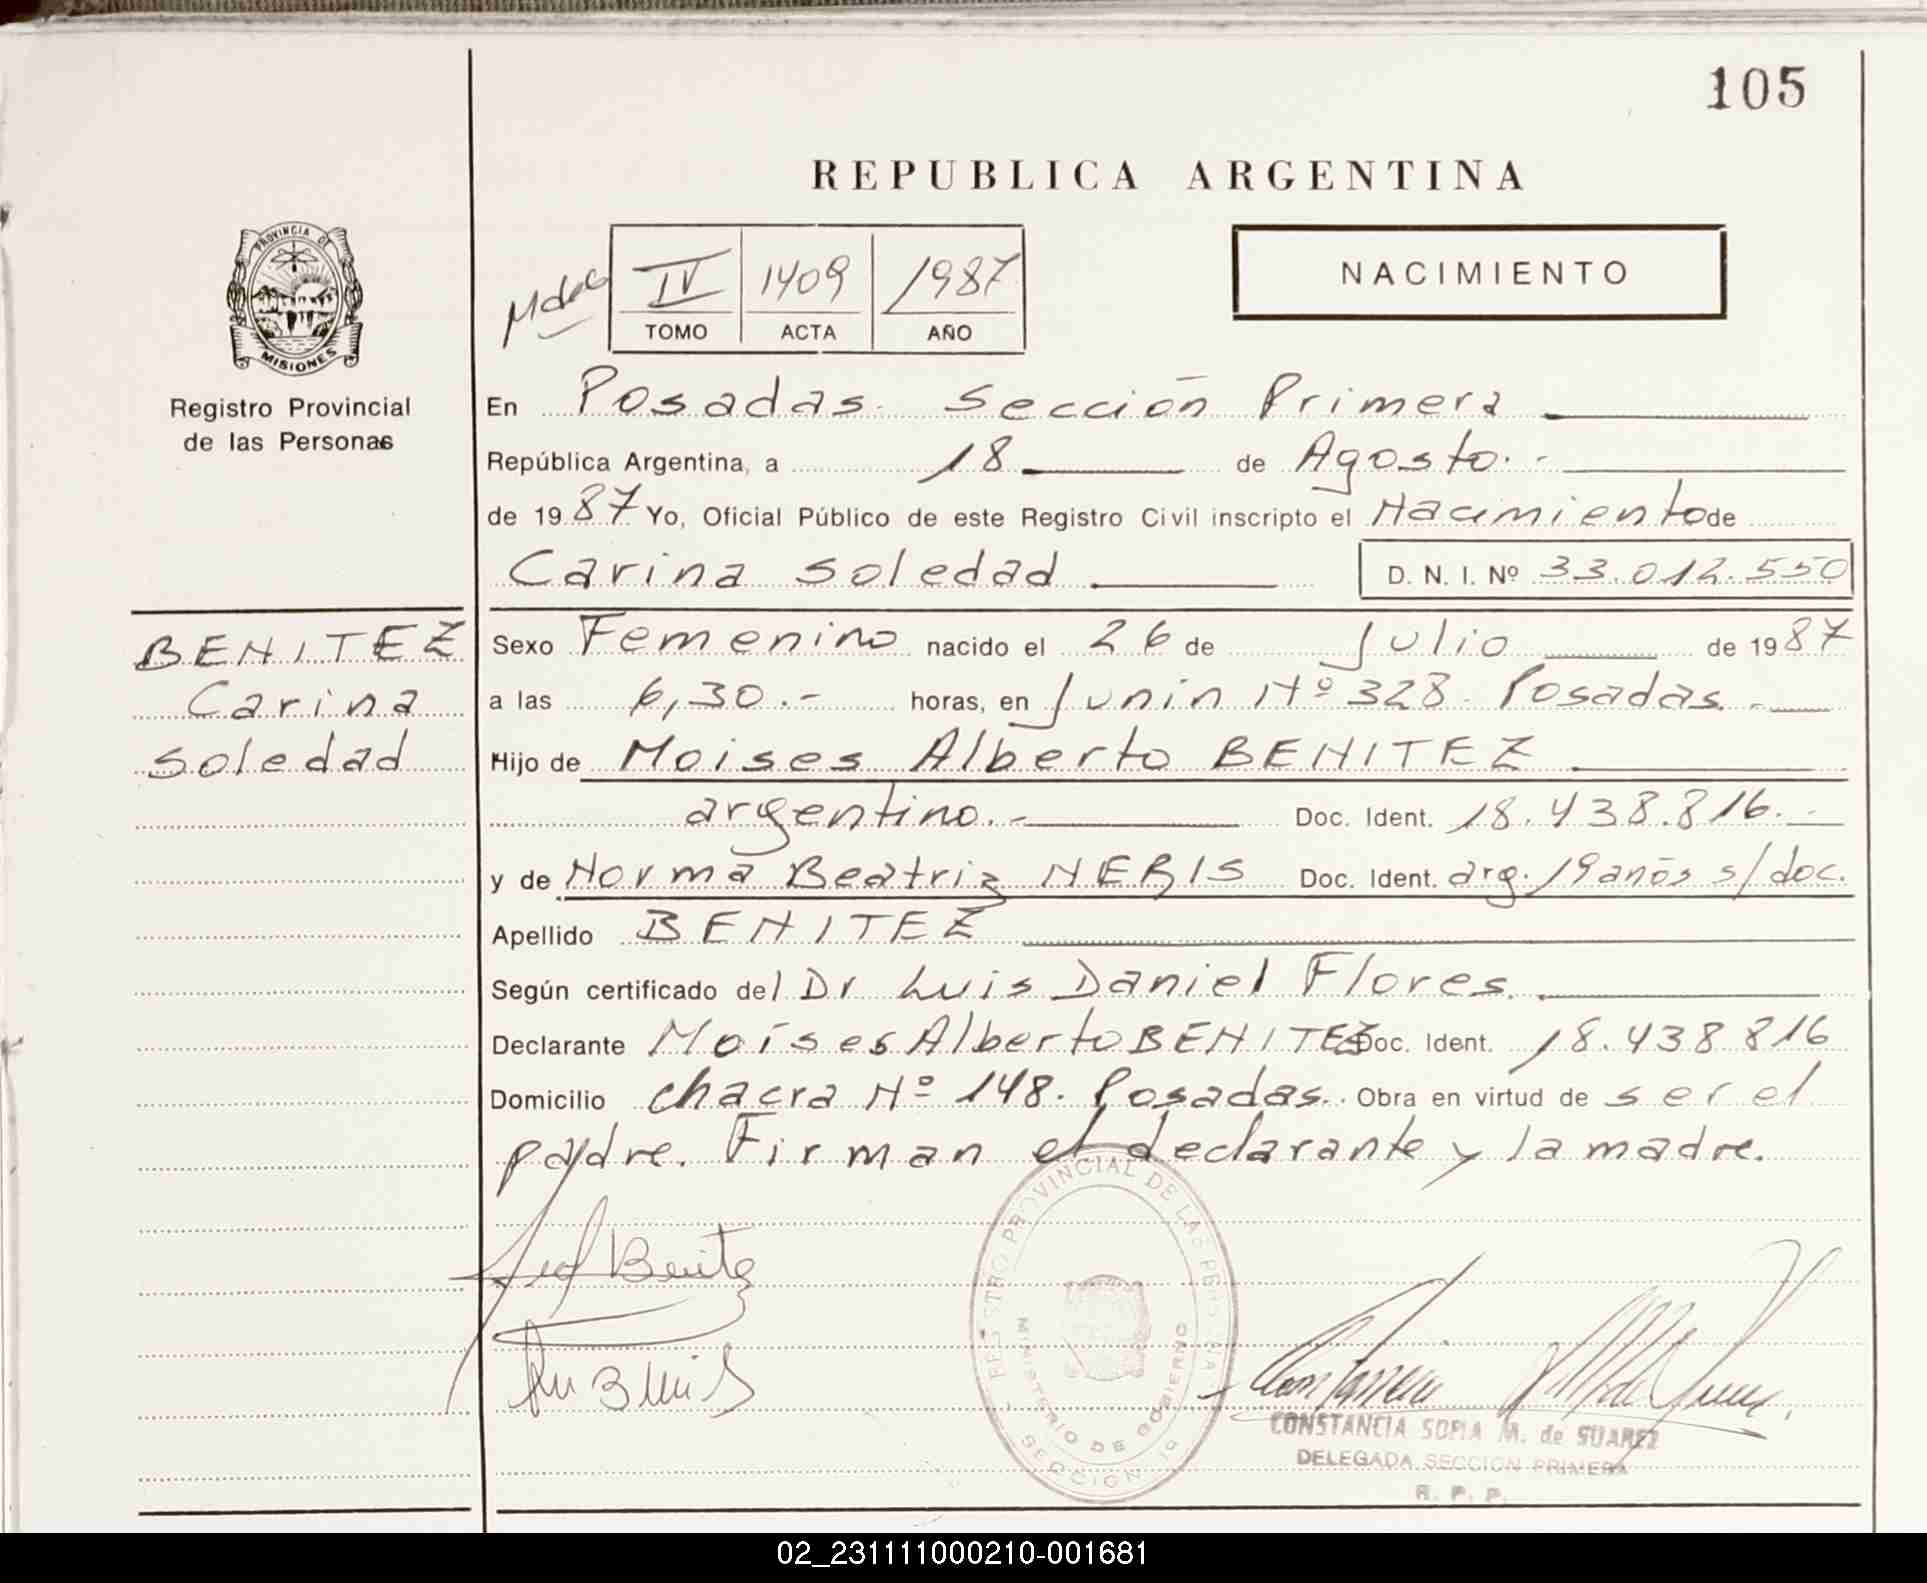 105
REPUBLICA ARGENTINA
PROVINCIA DE
MISIONES
Registro Provincial
de las Personas
IV 1409 1987
TOMO ACTA AÑO
NACIMIENTO
En Posadas. Sección Primera
República Argentina, a 18 de Agosto.-
de 1987 Yo, Oficial Público de este Registro Civil inscripto el Nacimiento de
Carina Soledad D. N. I. Nº 33.012.550
BENITEZ
Carina
Soledad
Sexo Femenino nacido el 26 de Julio de 1987
a las 6,30.- horas, en Junin Nº 328. Posadas.-
Hijo de Moises Alberto BENITEZ
argentino.- Doc. Ident. 18.438.816.-
y de Norma Beatriz NERIS Doc. Ident. arg. 19 años s/doc.
Apellido BENITEZ
Según certificado del Dr Luis Daniel Flores.
Declarante Moises Alberto BENITEZ Doc. Ident. 18.438.816
Domicilio chacra Nº 148. Posadas. Obra en virtud de ser el
padre. Firman el declarante y la madre.
Benitez
REGISTRO PROVINCIAL DE LAS PERSONAS
MINISTERIO DE GOBIERNO
SECCION 1a
CONSTANCIA SOFIA M. de SUAREZ
DELEGADA SECCION PRIMERA
R. P. P.
02_231111000210-001681